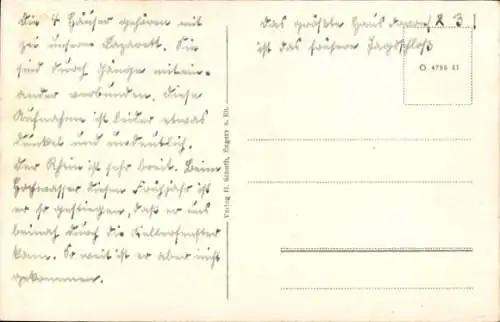 Die 4 Häuser gehören mit
zu unserm Lazarett. Sie
sind durch Gänge mitein-
ander verbunden. Diese
Aufnahme ist leider etwas
dunkel und undeutlich.
Der Rhein ist sehr breit. Beim
Hochwasser dieses Frühjahr ist
er so gestiegen, daß er uns
beinah durch die Kellerfenster
kam. So weit ist er aber nicht
gekommen.
Das größte Haus
ist das frühere Jagdschloß
4796 41
Verlag H. Scheuth, Engers a. Rh.